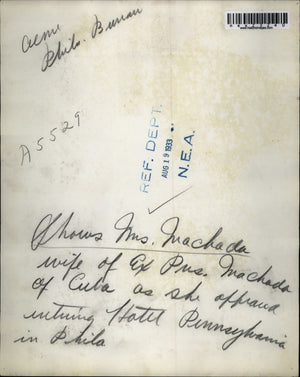 Acme
Phila. Bureau
A5529
REF. DEPT.
AUG 19 1933
N.E.A.
Shows Mrs. Machado
wife of Ex Pres. Machado
of Cuba as she appeared
entering Hotel Pennsylvania
in Phila